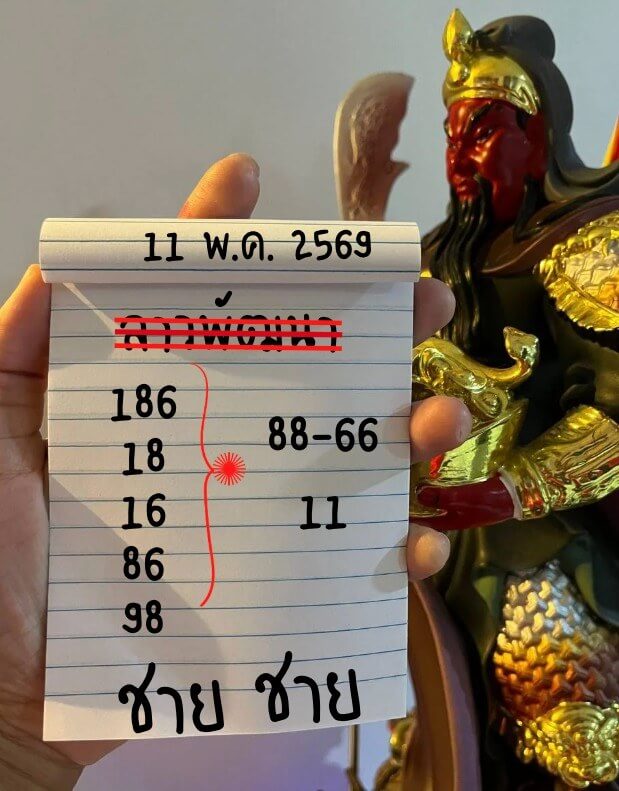 11 พ.ค. 2569
ลาวพัฒนา
186
18
88-66
16
11
86
98
ชาย ชาย